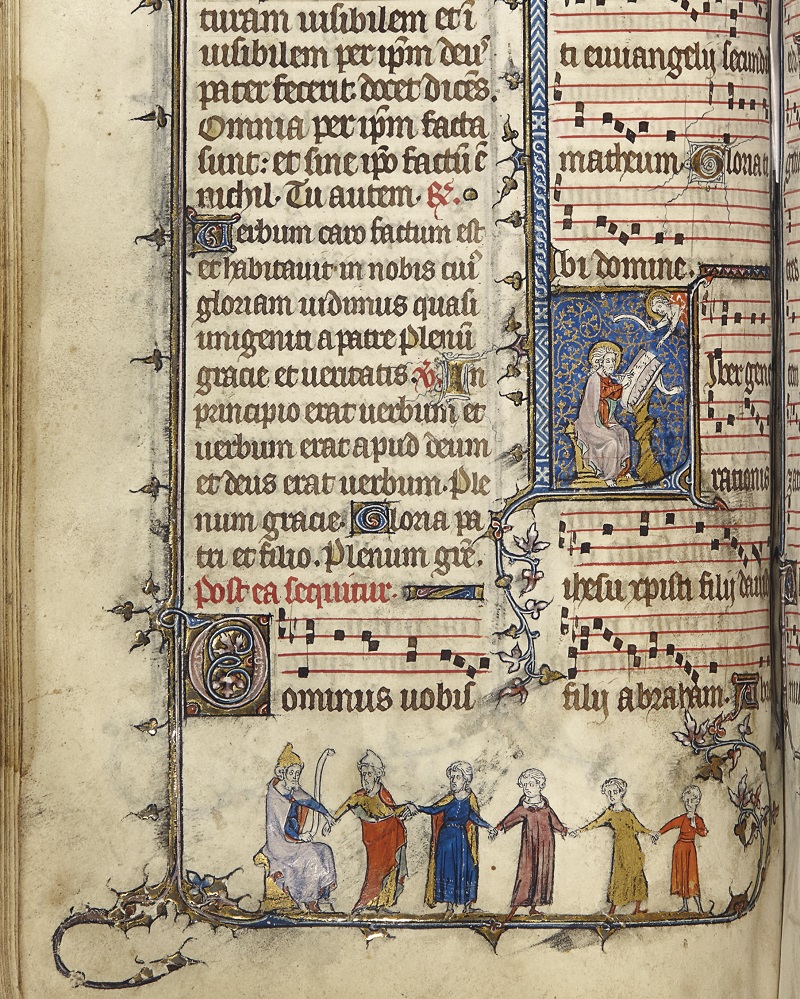 turam uisibilem et i
uisibilem per ip̄m deuˢ
pater fecerit: docet dicēs.
Omnia per ip̄m facta
sunt: et sine ip̄o factū ē
nichil. Tu autem. ℟.
Uerbum caro factum est
et habitauit in nobis cuiˢ
gloriam uidimus quasi
unigeniti a patre plenū
gracie et ueritatis. ℣. In
principio erat uerbum et
uerbum erat apud deum
et deus erat uerbum. Ple
num gracie. Gloria pa
tri et filio. Plenum gr̄e.
Post ea sequitur.
Dominus uobis
ti euuangelij secundu
matheum. Gloria ti
bi domine.
Liber gene
rationis
ihesu xpisti filij dauid
filij abraham. Abra